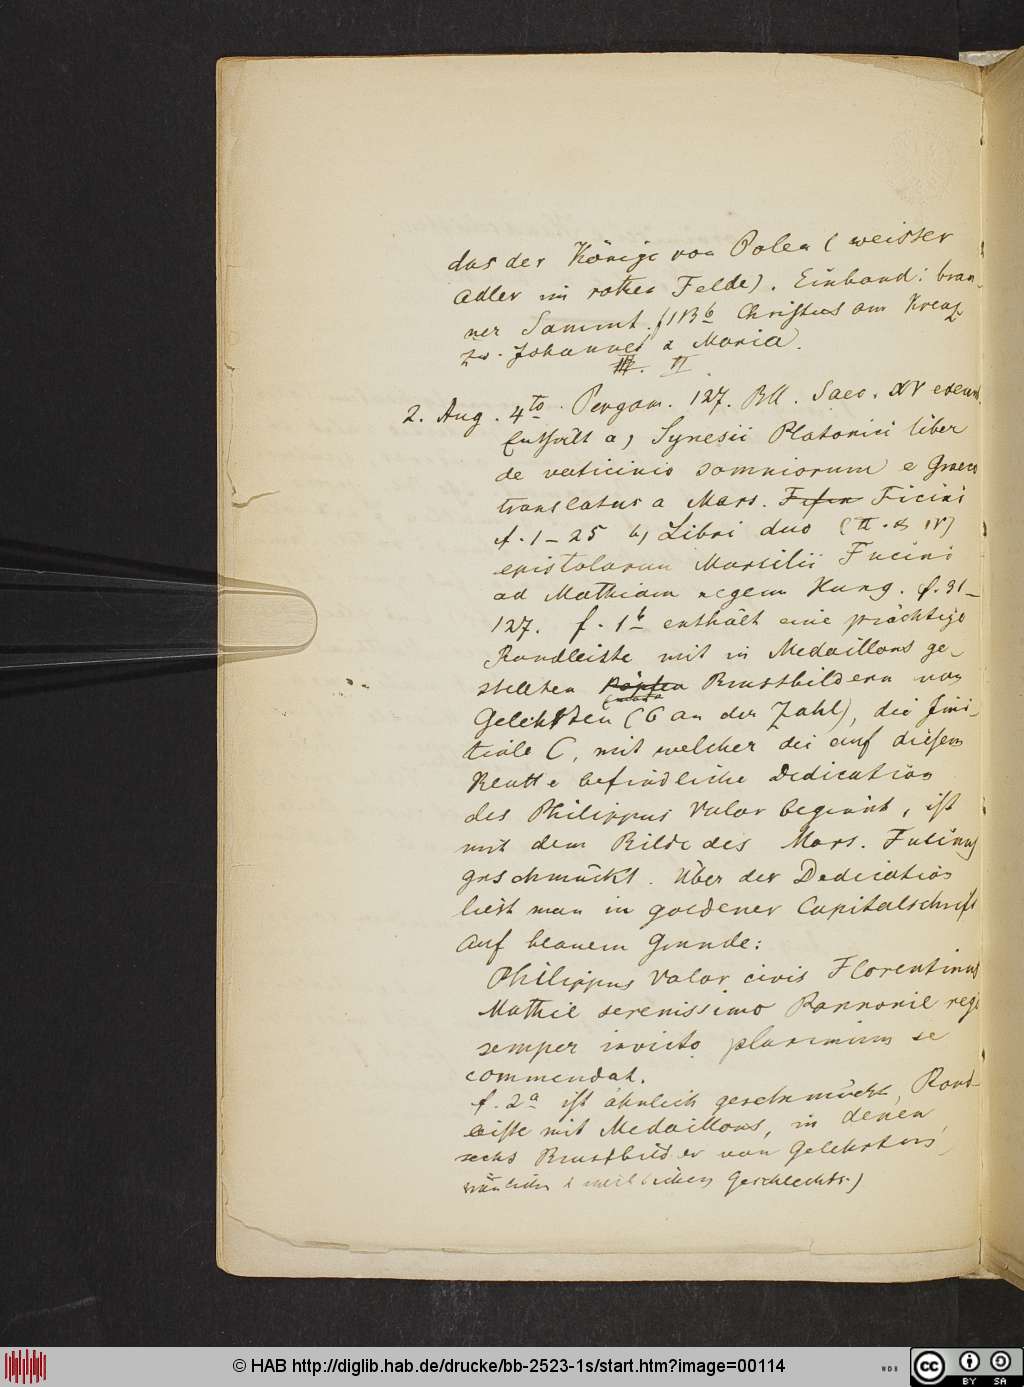 das der Könige von Polen ( weisser
Adler im rothen Felde). Einband: brau-
ner Sammt. f 113 b Christus am Kreuz
zw. Johannes & Maria.
III. II.
2. Aug. 4to Pergam. 127. Bll. Saec. XV exeunt.
Enthält a) Synesii Platonici liber
de vaticinio somniorum e Graeco
translatus a Mars. Ficini
f. 1 - 25 b) Libri duo (III. & IV)
epistolarum Marsilii Fucini
ad Mathiam regem Hung. f. 31-
127. f. 1b enthält eine prächtige
Randleiste mit in Medaillons ge-
stellten Köpfen Brustbildern von
Gelehrten (6 an der Zahl), die Ini-
tiale C, mit welcher die auf diesem
Blatte befindliche Dedication
des Philippus Valor beginnt, ist
mit dem Bilde des Mars. Fucinus
geschmückt. Über der Dedication
liest man in goldener Capitalschrift
auf blauem Grunde:
Philippus Valor civis Florentinus
Mathie serenissimo Pannonie regi
semper invicto plurimum se
commendat.
f. 2a ist ähnlich geschmückt, Rand-
leiste mit Medaillons, in denen
sechs Brustbilder von Gelehrten,
männlichen & weiblichen Geschlechts.)
© HAB http://diglib.hab.de/drucke/bb-2523-1s/start.htm?image=00114
WDB
cc BY SA